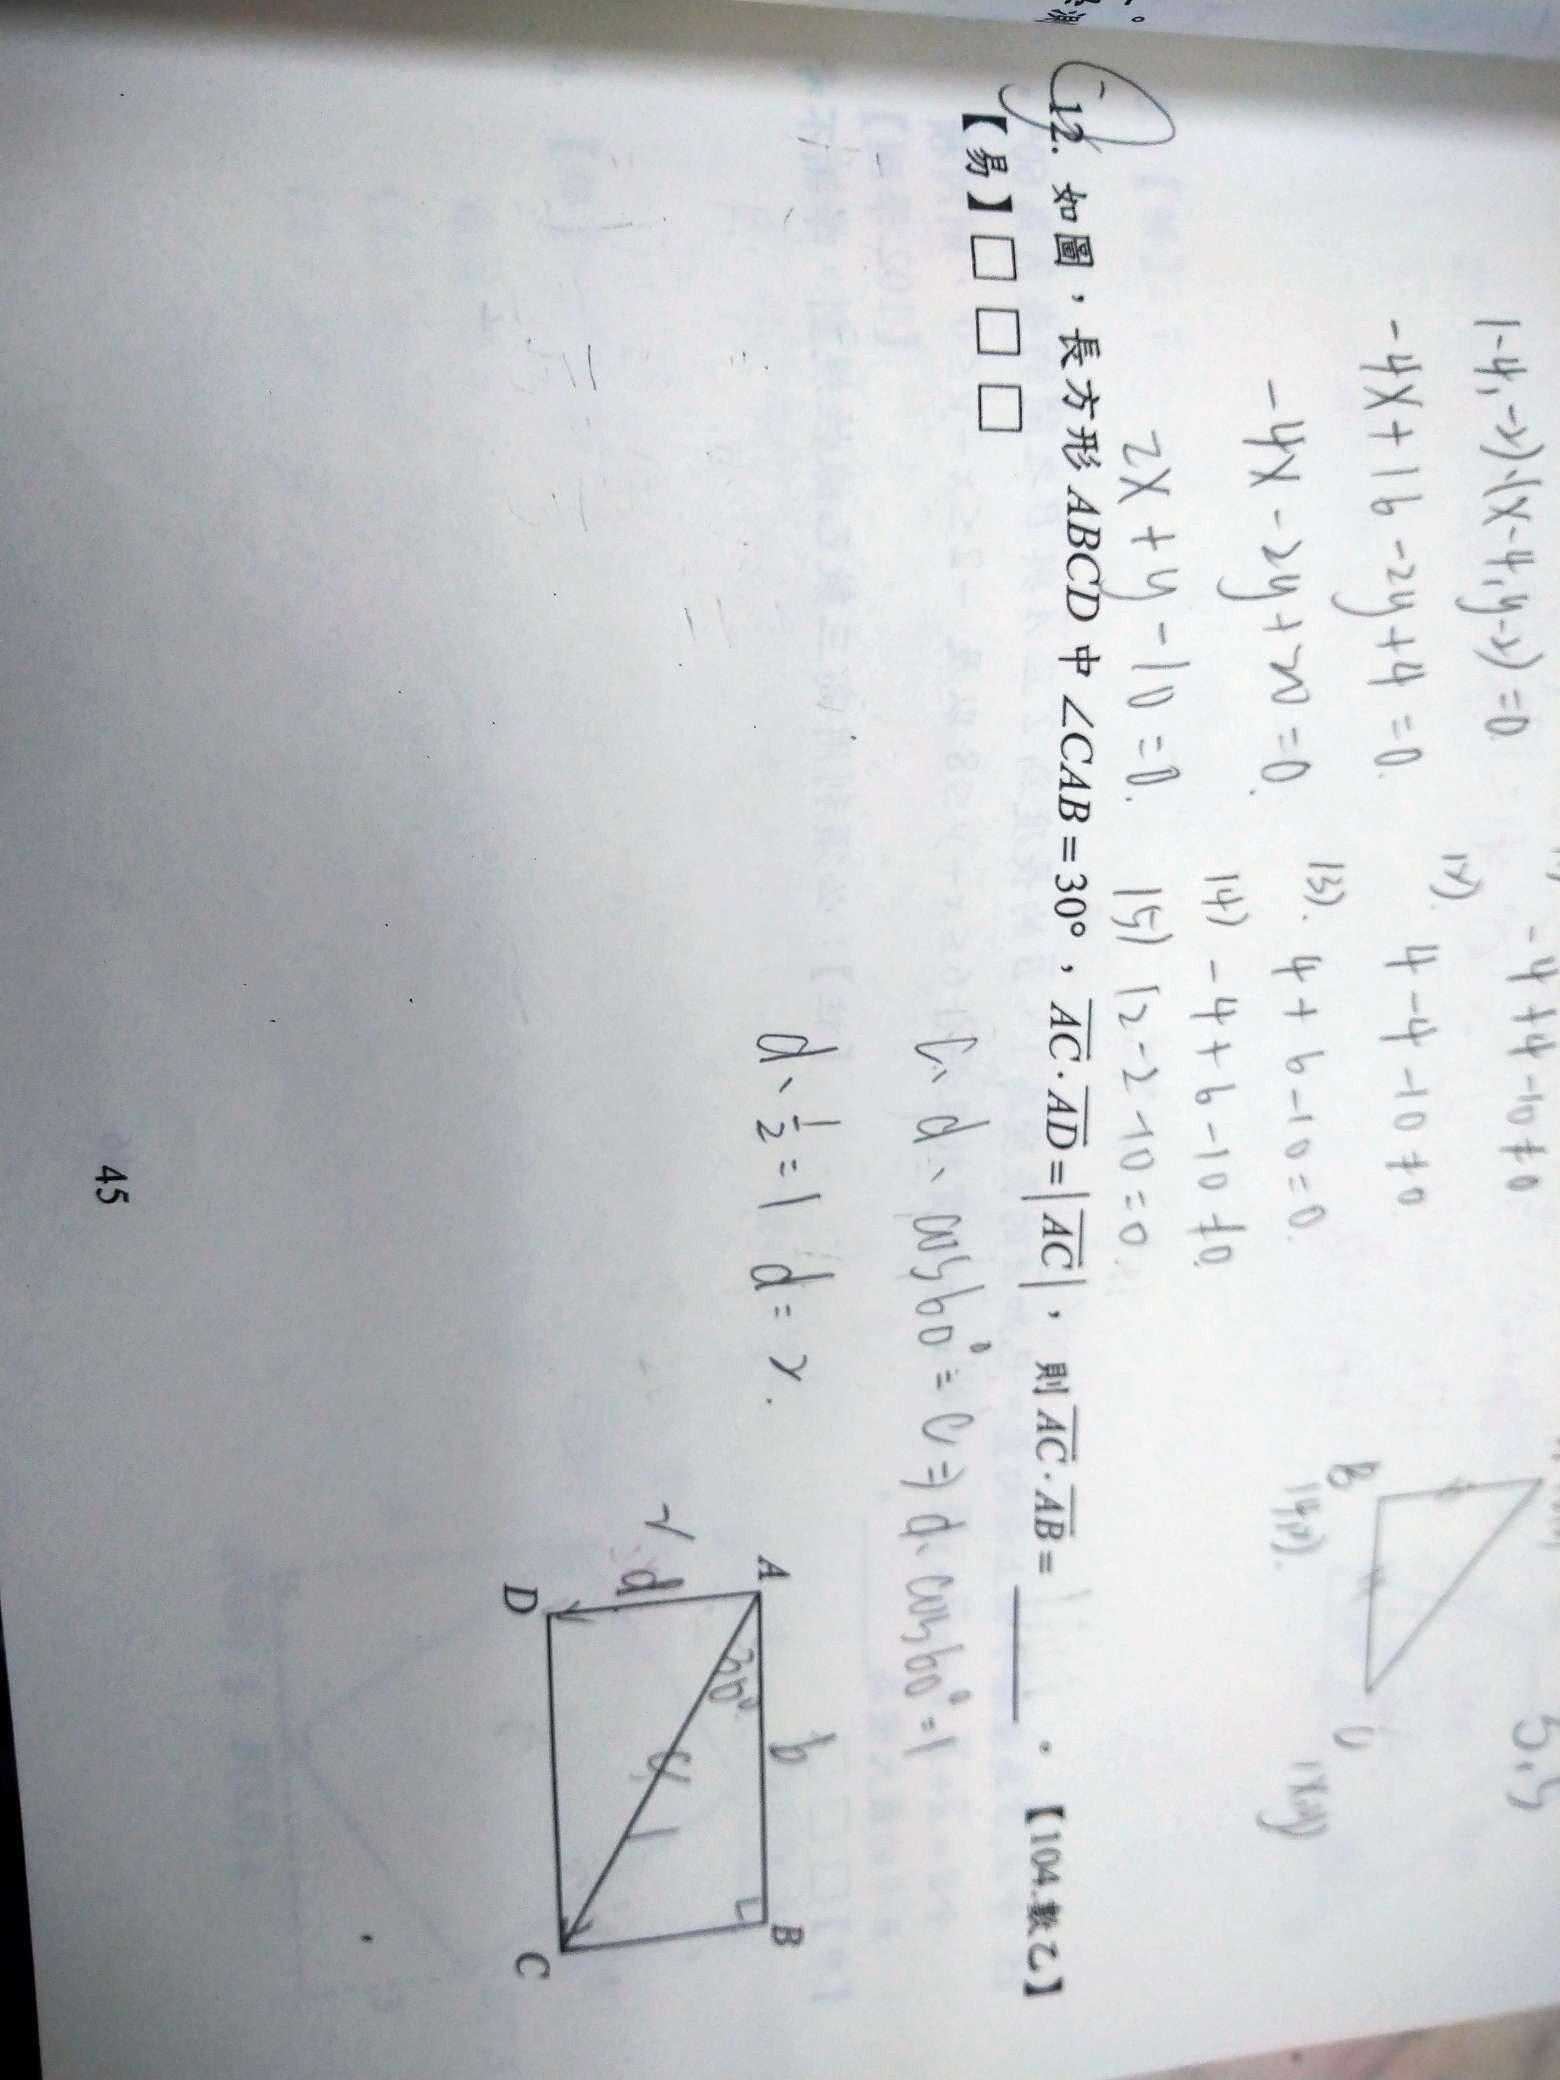 1-4,-2)·(x-4,y-2)=0
-4x+16-2y+4=0.
-4x-2y+20=0.
2x+y-10=0.
-4+4-10≠0
12). 4-4-10≠0
13). 4+6-10=0.
14) -4+6-10≠0.
15) 12-2-10=0.
B
5,5
12. 如圖,長方形 ABCD 中 ∠CAB=30°,AC·AD=|AC|,則 AC·AB= ______。【104.數乙】
【易】□□□
c·d·cos60°=c⇒d·cos60°=1
d·1/2=1 d=2.
A
b
B
30°
2
d
D
C
45